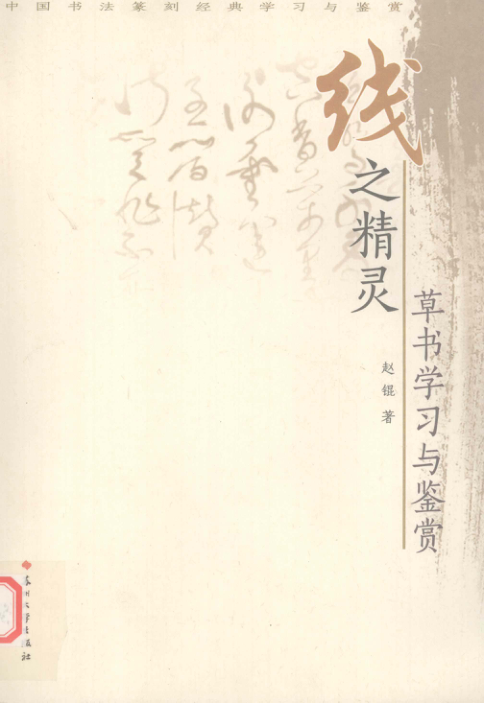 中国书法篆刻经典学习与鉴赏
线之精灵
草书学习与鉴赏
赵锟 著
苏州大学出版社